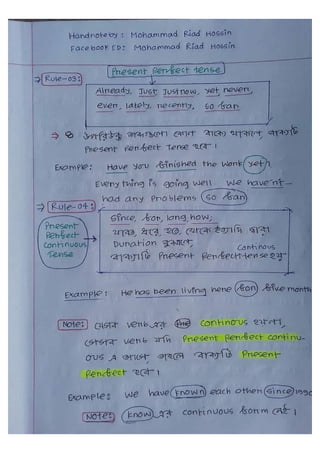 Handnote by : Mohammad Riad Hossin
Facebook ID: Mohammad Riad Hossin
Present Perfect tense
⇒ Rule-03:
Already, Just, Just now, yet, never,
ever, lately, recently, so far
Present Perfect tense হবে।
Example: Have you finished the work (yet)?
Every thing is going well we haven't
had any problems (so far)
⇒ Rule-04:
Since, for, long, how,
যাবৎ, ধরে, হতে, থেকে ইত্যাদি দ্বারা
Duration বুঝালে,
Continous
বাক্যটি Present Perfect tense হয়
Present
Perfect
Continuous
Tense
Example: He has been living here (for) five month
Note: যেসব verb এর ing continous হয়না,
সেসব verb যদি Present Perfect continu-
ous এ আসে, তাহলে বাক্যটি Present
Perfect হবে।
Example: we have (known) each other (since) 1990
Note: (know) এর continuous form নেই।